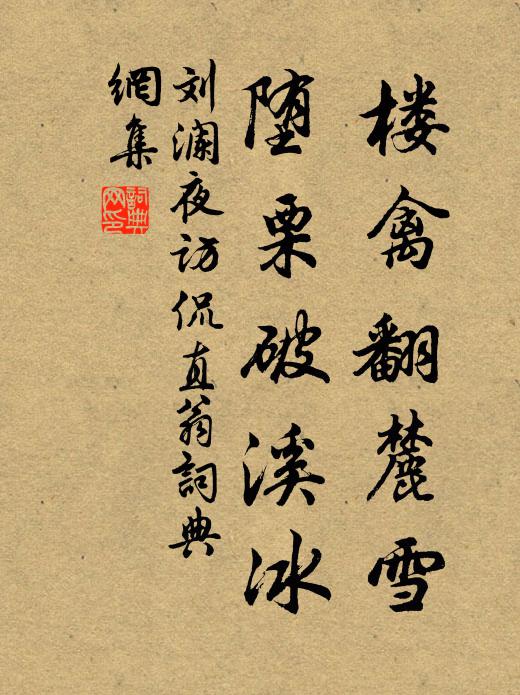 楼禽翻麓雪
堕栗破溪冰
刘澜夜访侃直翁詞典
網集
詞典網印